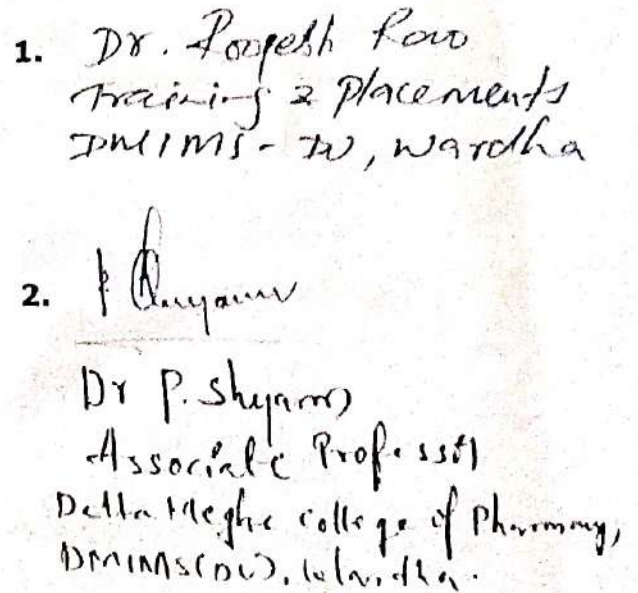 1. Dr. Roopesh Rao
Training & Placements
DMIMS - DU, Wardha
2. P Shyam
Dr P. Shyam
Associate Professor
Datta Meghe college of Pharmacy,
DMIMS(DU), Wardha.